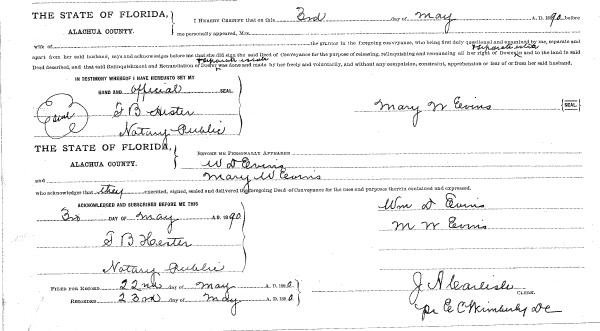 THE STATE OF FLORIDA,
ALACHUA COUNTY.
I HEREBY CERTIFY that on this 3rd day of May A. D. 1890 before
me personally appeared, Mrs.
wife of the grantor in the foregoing conveyance, who being first duly questioned and examined by me, separate and
apart from her said husband, says and acknowledges before me that she did sign the said Deed of Conveyance for the purpose of releasing, relinquishing and renouncing all her right of Dower in and to the land in said
separate estate
Deed described, and that said Relinquishment and Renunciation of Dower was done and made by her freely and voluntarily, and without any compulsion, constraint, apprehension or fear of or from her said husband.
separate estate
IN TESTIMONY WHEREOF I HAVE HEREUNTO SET MY
HAND AND official SEAL
Seal
T B Hester
Notary Public
Mary W Evins SEAL
THE STATE OF FLORIDA,
ALACHUA COUNTY.
BEFORE ME PERSONALLY APPEARED
W D Evins
and Mary W Evins
who acknowledges that they executed, signed, sealed and delivered the foregoing Deed of Conveyance for the uses and purposes therein contained and expressed.
ACKNOWLEDGED AND SUBSCRIBED BEFORE ME THIS
3rd DAY OF May A.D. 1890
T B Hester
Notary Public
Wm D Evins
M W Evins
FILED FOR RECORD 22nd day of May A. D. 1890
RECORDED 23rd day of May A. D. 1890
J A Carlisle
CLERK.
pr E C Wimberly DC